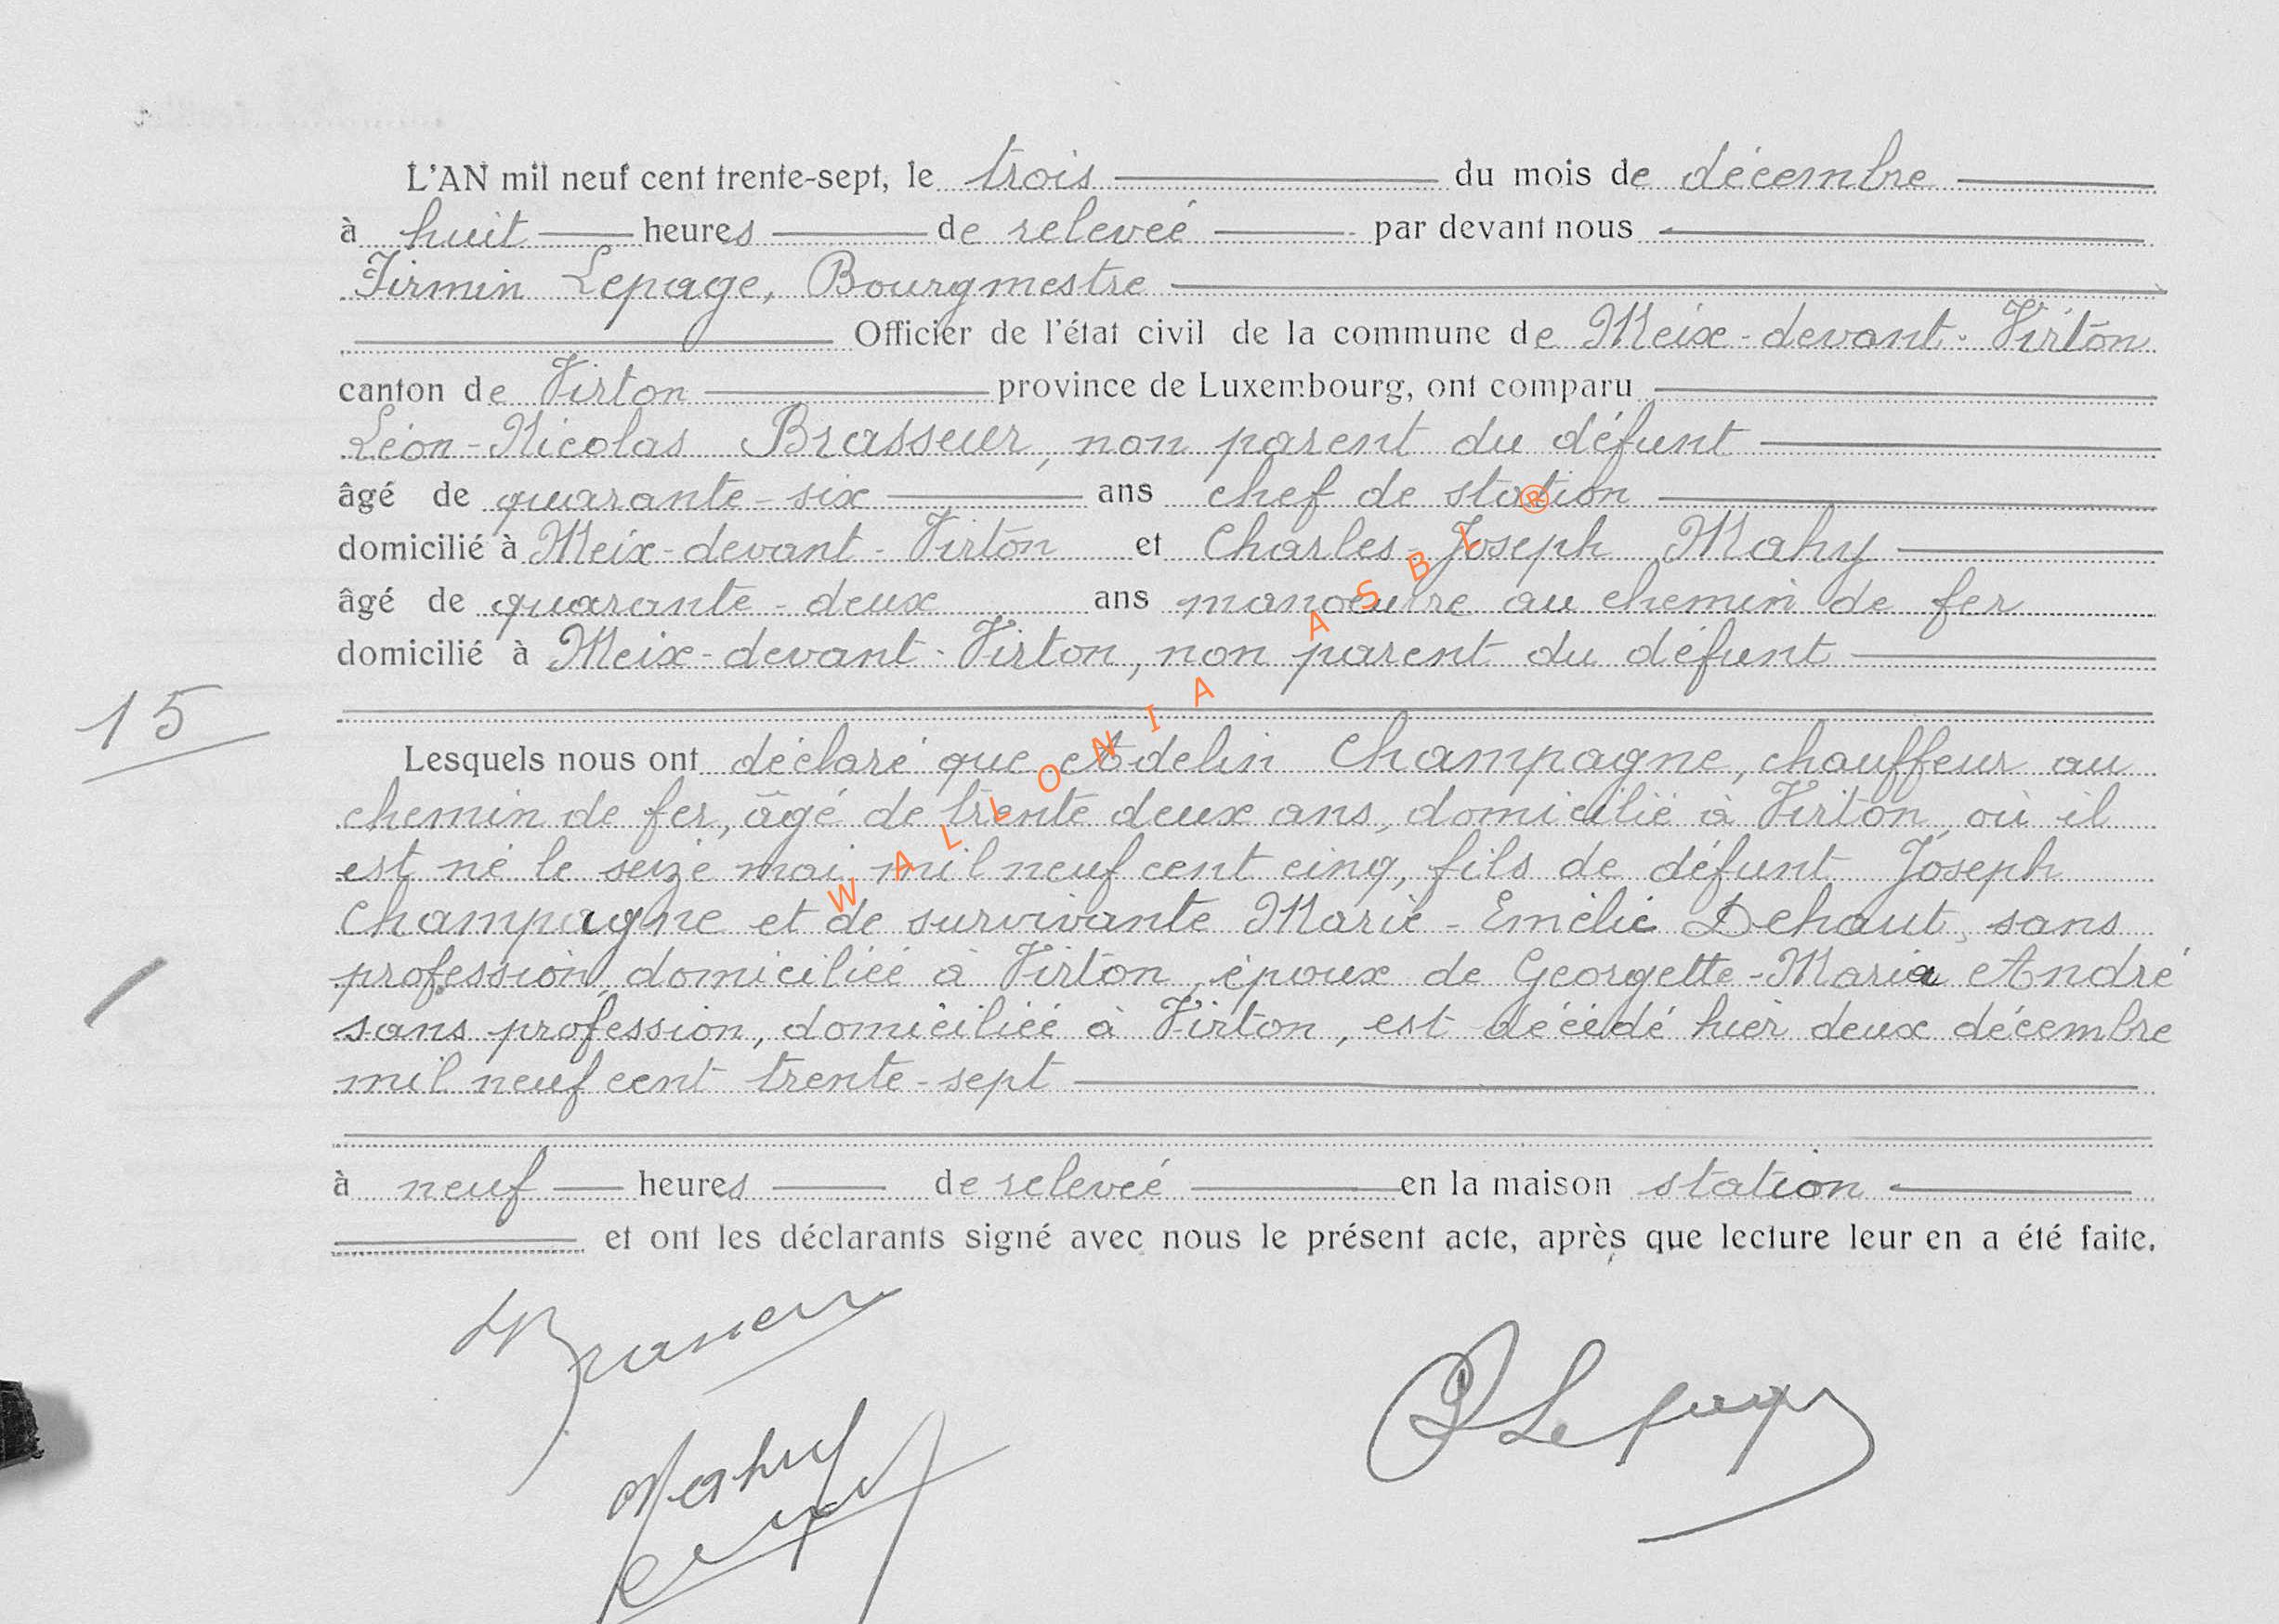 L'AN mil neuf cent trente-sept, le trois du mois de décembre
à huit heures de releveé par devant nous
Firmin Lepage, Bourgmestre
Officier de l'état civil de la commune de Meix-devant-Virton
canton de Virton province de Luxembourg, ont comparu
Léon-Nicolas Brasseur, non parent du défunt
âgé de quarante-six ans chef de station
domicilié à Meix-devant-Virton et Charles-Joseph Mahy
âgé de quarante-deux ans manoeuvre au chemin de fer
domicilié à Meix-devant-Virton, non parent du défunt
15
Lesquels nous ont déclaré que Adelin Champagne, chauffeur au
chemin de fer, âgé de trente deux ans, domicilié à Virton, où il
est né le seize mai mil neuf cent cinq, fils de défunt Joseph
Champagne et de survivante Marie-Emélie Dehaut, sans
profession, domiciliée à Virton, époux de Georgette-Maria André
sans profession, domiciliée à Virton, est décédé hier deux décembre
mil neuf cent trente-sept
à neuf heures de releveé en la maison station
et ont les déclarants signé avec nous le présent acte, après que lecture leur en a été faite.
LBrasseur
Mahy
Lepage
WALLONIA ASBL ®